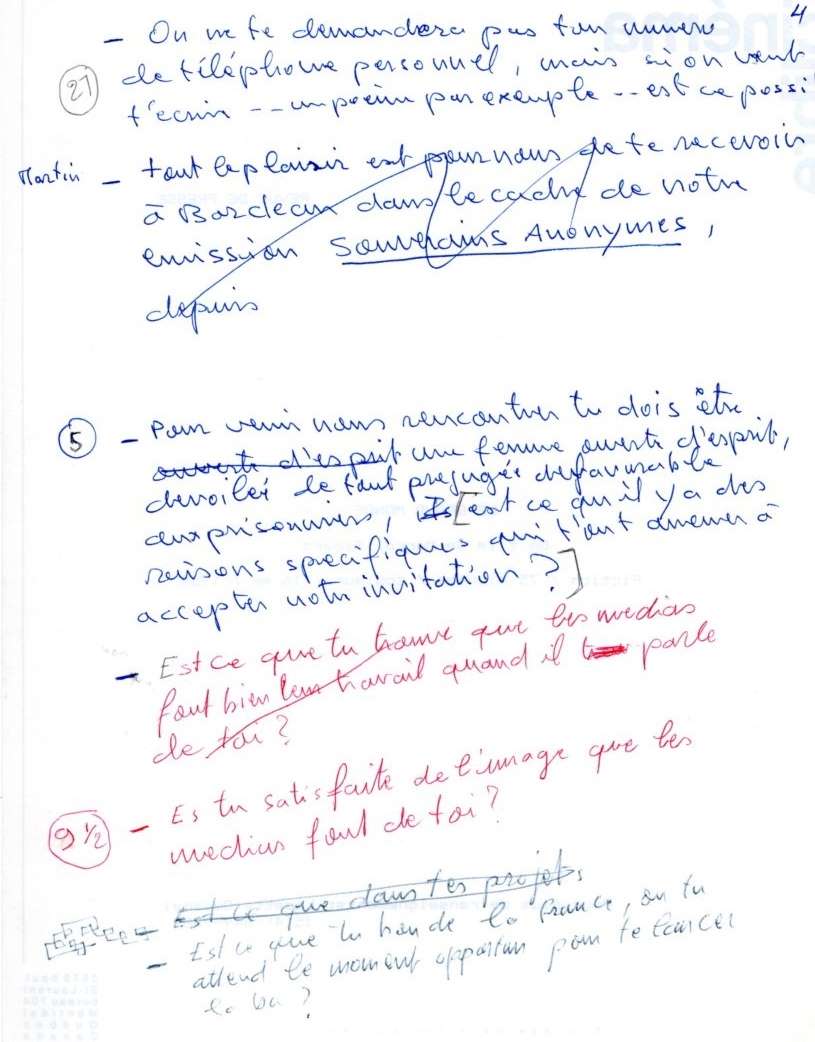 4
- On ne te demandera pas ton numero
27 de téléphone personnel, mais si on veut
t'ecrire -- un poème par exemple -- est ce possi
Martin - tout le plaisir est pour nous de te recevoir
à Bordeaux dans le cadre de notre
emission Souverains Anonymes,
depuis
5 - Pour venir nous rencontrer tu dois être
ouverte d'esprit une femme ouverte d'esprit,
de tout prejugée defavorable
aux prisonniers, [est ce qu'il y a des
raisons specifiques qui t'ont amener à
accepter notre invitation ?]
- Est ce que tu trouve que les medias
font bien leur travail quand il parle
de toi ?
9 ½ - Es tu satisfaite de l'image que les
medias font de toi ?
Est ce que dans tes projets
- Est ce que tu de la France, ou tu
attend le moment opportun pour te lancer
la ba ?